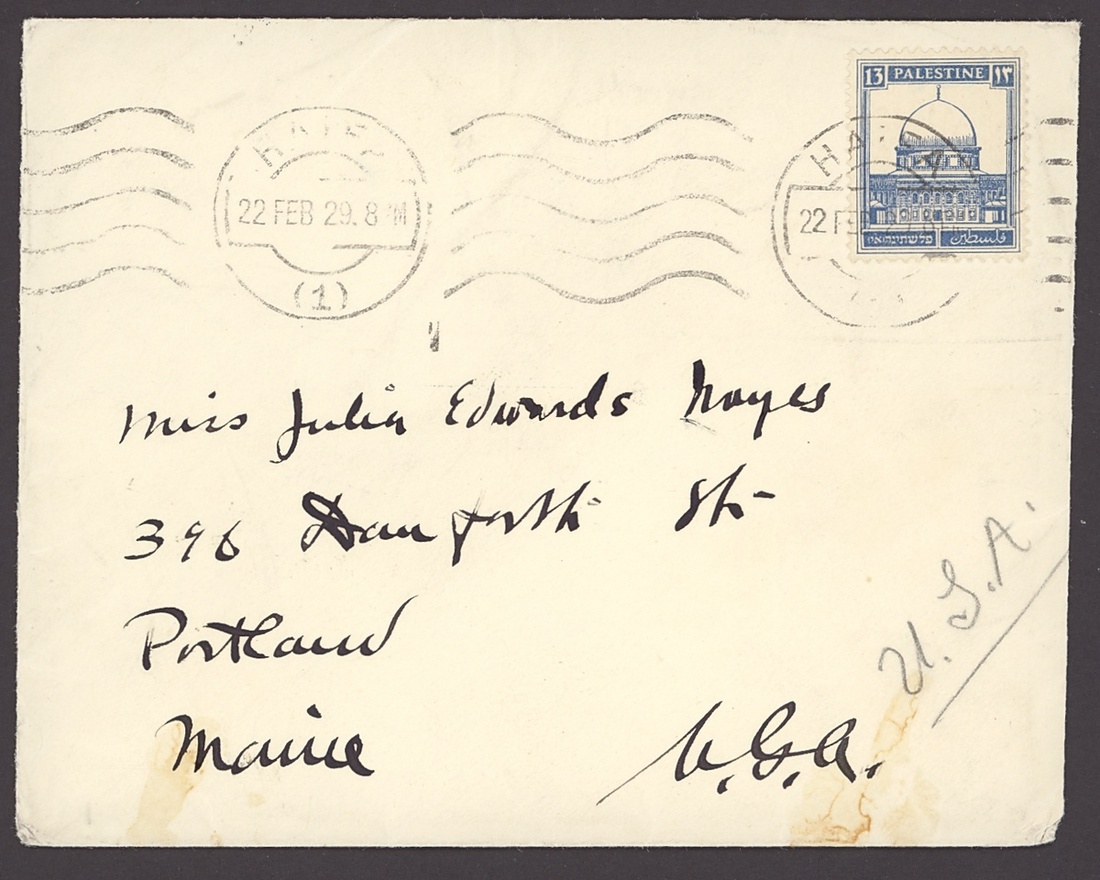 13 PALESTINE ١٣
פלשתינה א״י فلسطين
HAIFA
22 FEB 29. 8 M
(1)
HAIFA
22 FEB 29. 8
Miss Julia Edwards Noyes
396 Danforth St.
Portland
Maine
U.S.A.
U.S.A.